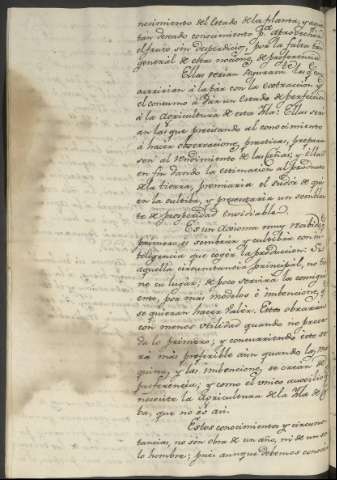 nocimiento del Estado de la planta, y a
tan deseado conocimiento pa. aprovechar
el fruto sin desperdicio, por la falta tan
general de otras nociones de preferencia
Ellas serian seguram.te las q.e
arririan á la par con la extraccion y
el consumo á dar un estado de perfeccion
á la agricultura de esta Isla: Ellas seri
an las que precisando al conocimiento
á hacer observaciones practicas, prepara
sen al rendimiento de las cañas; y ellas
en fin dando la estimacion al producto
de la tierra, premiaria el sudor de qui
en la cultiba, y presentaria un semblan
te de prosperidad envidiable.
Es un axioma muy recibido
primero es sembrar y cultibar con in
teligencia que coger la produccion. Si
aquella circunstancia principal, no ti
ne su lugar; de poco servirá la consigui
ente, por mas modelos ó imbenciones q
se quieran hacer saber. Estos obrarán
con menos utilidad quando no prece
da lo primero; y concurriendo esto se
rá mas preferible aun quando las ma
quinas, y las imbenciones, se crean de
preferencia; y como el unico auxilio q
necesite la agricultura de la Isla de Cu
ba, que no es asi.
Estos conocimientos y circuns
tancias, no son obra de un año, ni de un so
lo hombre; pues aunque debemos